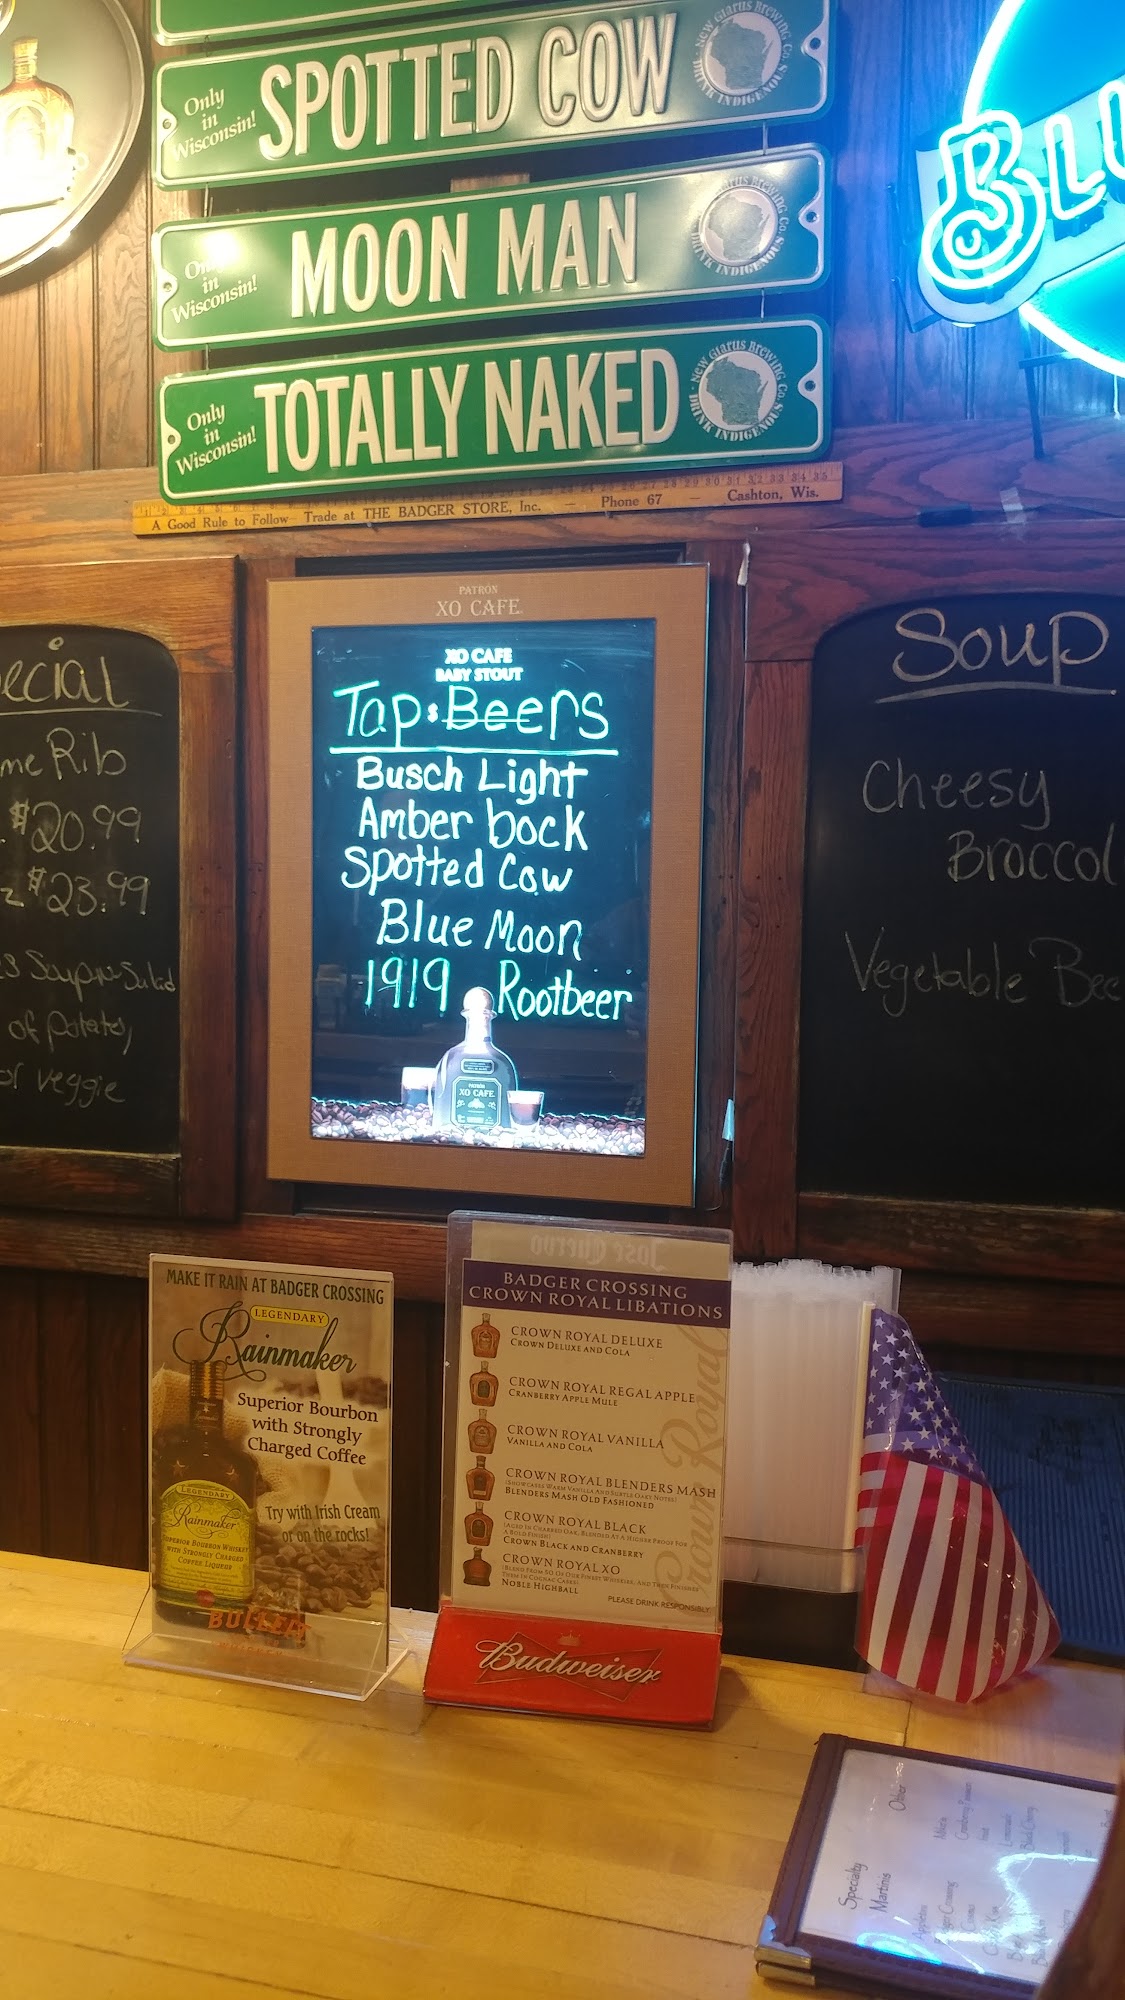 Only
in
Wisconsin!
SPOTTED COW
New Glarus Brewing Co.
DRINK INDIGENOUS
Only
in
Wisconsin!
MOON MAN
New Glarus Brewing Co.
DRINK INDIGENOUS
Only
in
Wisconsin!
TOTALLY NAKED
New Glarus Brewing Co.
DRINK INDIGENOUS
A Good Rule to Follow — Trade at THE BADGER STORE, Inc. — Phone 67 — Cashton, Wis.
PATRÓN
XO CAFE
XO CAFE
BABY STOUT
Tap Beers
Busch Light
Amber bock
Spotted Cow
Blue Moon
1919 Rootbeer
PATRÓN
XO CAFE
Rib
$20.99
$23.99
Soup Salad
of potatoes,
or veggie
Soup
Cheesy
Vegetable
MAKE IT RAIN AT BADGER CROSSING
LEGENDARY
Rainmaker
Superior Bourbon
with Strongly
Charged Coffee
Try with Irish Cream
or on the rocks!
LEGENDARY
Rainmaker
SUPERIOR BOURBON WHISKEY
WITH STRONGLY CHARGED
COFFEE LIQUEUR
BULLEIT
Jose Cuervo
BADGER CROSSING
CROWN ROYAL LIBATIONS
CROWN ROYAL DELUXE
CROWN DELUXE AND COLA
CROWN ROYAL REGAL APPLE
CRANBERRY APPLE MULE
CROWN ROYAL VANILLA
VANILLA AND COLA
CROWN ROYAL BLENDERS MASH
(SHOWCASES WARM VANILLA AND SUBTLE OAKY NOTES)
BLENDERS MASH OLD FASHIONED
CROWN ROYAL BLACK
(AGED IN CHARRED OAK, BLENDED AT A HIGHER PROOF FOR
A BOLD FINISH)
CROWN BLACK AND CRANBERRY
CROWN ROYAL XO
(BLEND FROM 50 OF OUR FINEST WHISKIES, AND THEN FINISHED
THEM IN COGNAC CASKS)
NOBLE HIGHBALL
PLEASE DRINK RESPONSIBLY
Crown Royal
Budweiser
Specialty
Martinis
Other